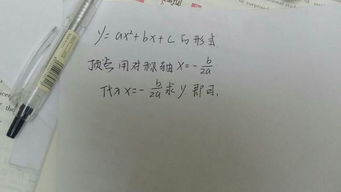 y=ax²+bx+c的形式
顶点用对称轴x=-b/2a
代入x=-b/2a求y即可.